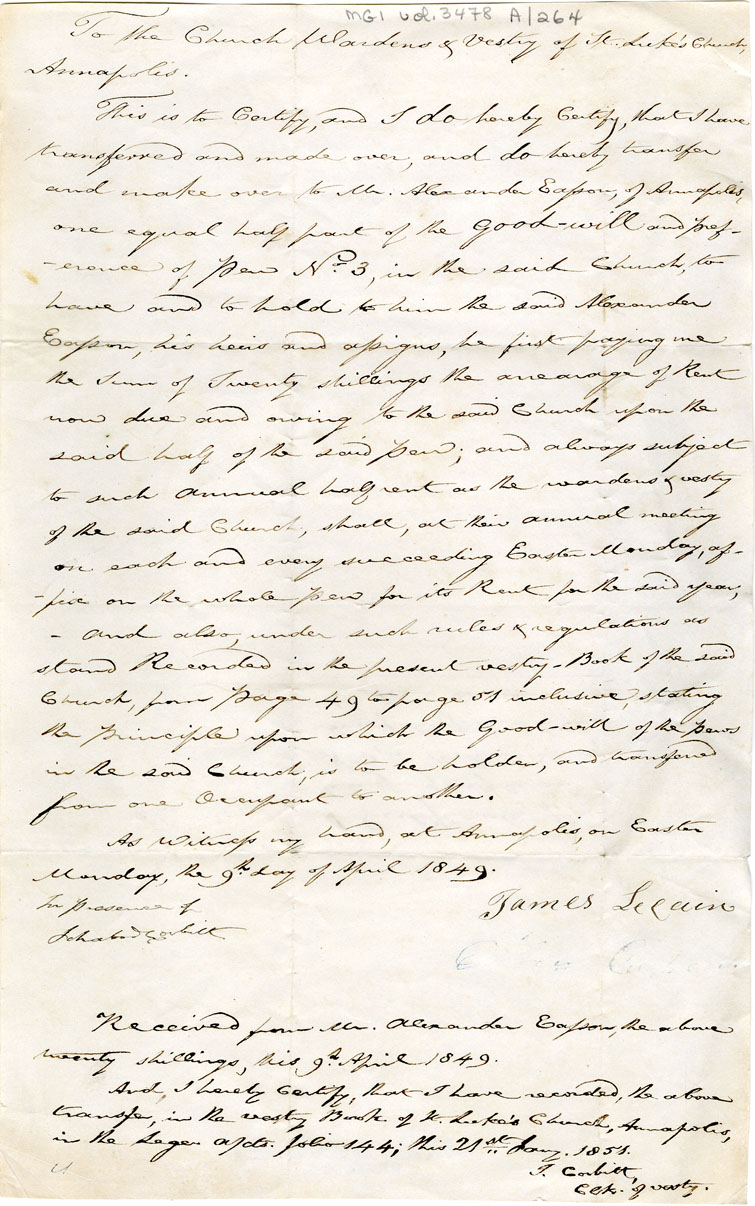 MG1 vol. 3478 A/264
To the Church Wardens & Vestry of St. Luke's Church,
Annapolis.
This is to Certify, and I do hereby Certify, that I have
transferred and made over, and do hereby transfer
and make over to Mr. Alexander Easson, of Annapolis,
one equal half part of the Good-will and pref-
-erence of Pew No. 3, in the said Church, to
have and to hold to him the said Alexander
Easson, his heirs and assigns, he first paying me
the Sum of Twenty shillings the arrearage of Rent
now due and owing to the said Church upon the
said half of the said Pew; and always subject
to such annual half rent as the wardens & vestry
of the said Church, shall, at their annual meeting
on each and every succeeding Easter Monday, af-
-fix on the whole Pew for its Rent for the said year,
- and also, under such rules & regulations as
stand Recorded in the present vestry-Book of the said
Church, from Page 49 to page 51 inclusive, stating
the Principle upon which the Good-will of the pews
in the said Church, is to be holden, and transferred
from one Occupant to another.
As Witness my hand, at Annapolis, on Easter
Monday, the 9th day of April 1849.
In presence of
Ichabod Corbitt
James Lecain
Received from Mr. Alexander Easson, the above
twenty shillings, this 9th April 1849.
And, I hereby Certify, that I have recorded, the above
transfer, in the vestry Book of St. Luke's Church, Annapolis,
in the Leger a/cts. folio 144; this 21st Jany. 1851.
I. Corbitt,
Clk. of vestry.